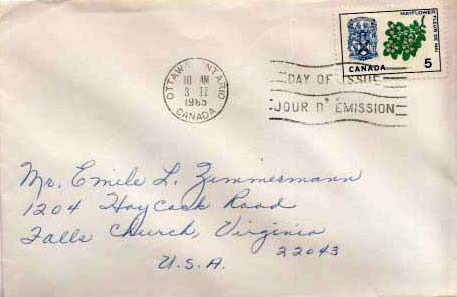 MAYFLOWER
FLEUR DE MAI
CANADA 5
OTTAWA ONTARIO
10 AM
1965
CANADA
DAY OF ISSUE
JOUR D'ÉMISSION
Mr. Emile L. Zimmermann
1204 Haycock Road
Falls Church, Virginia
22043
U.S.A.